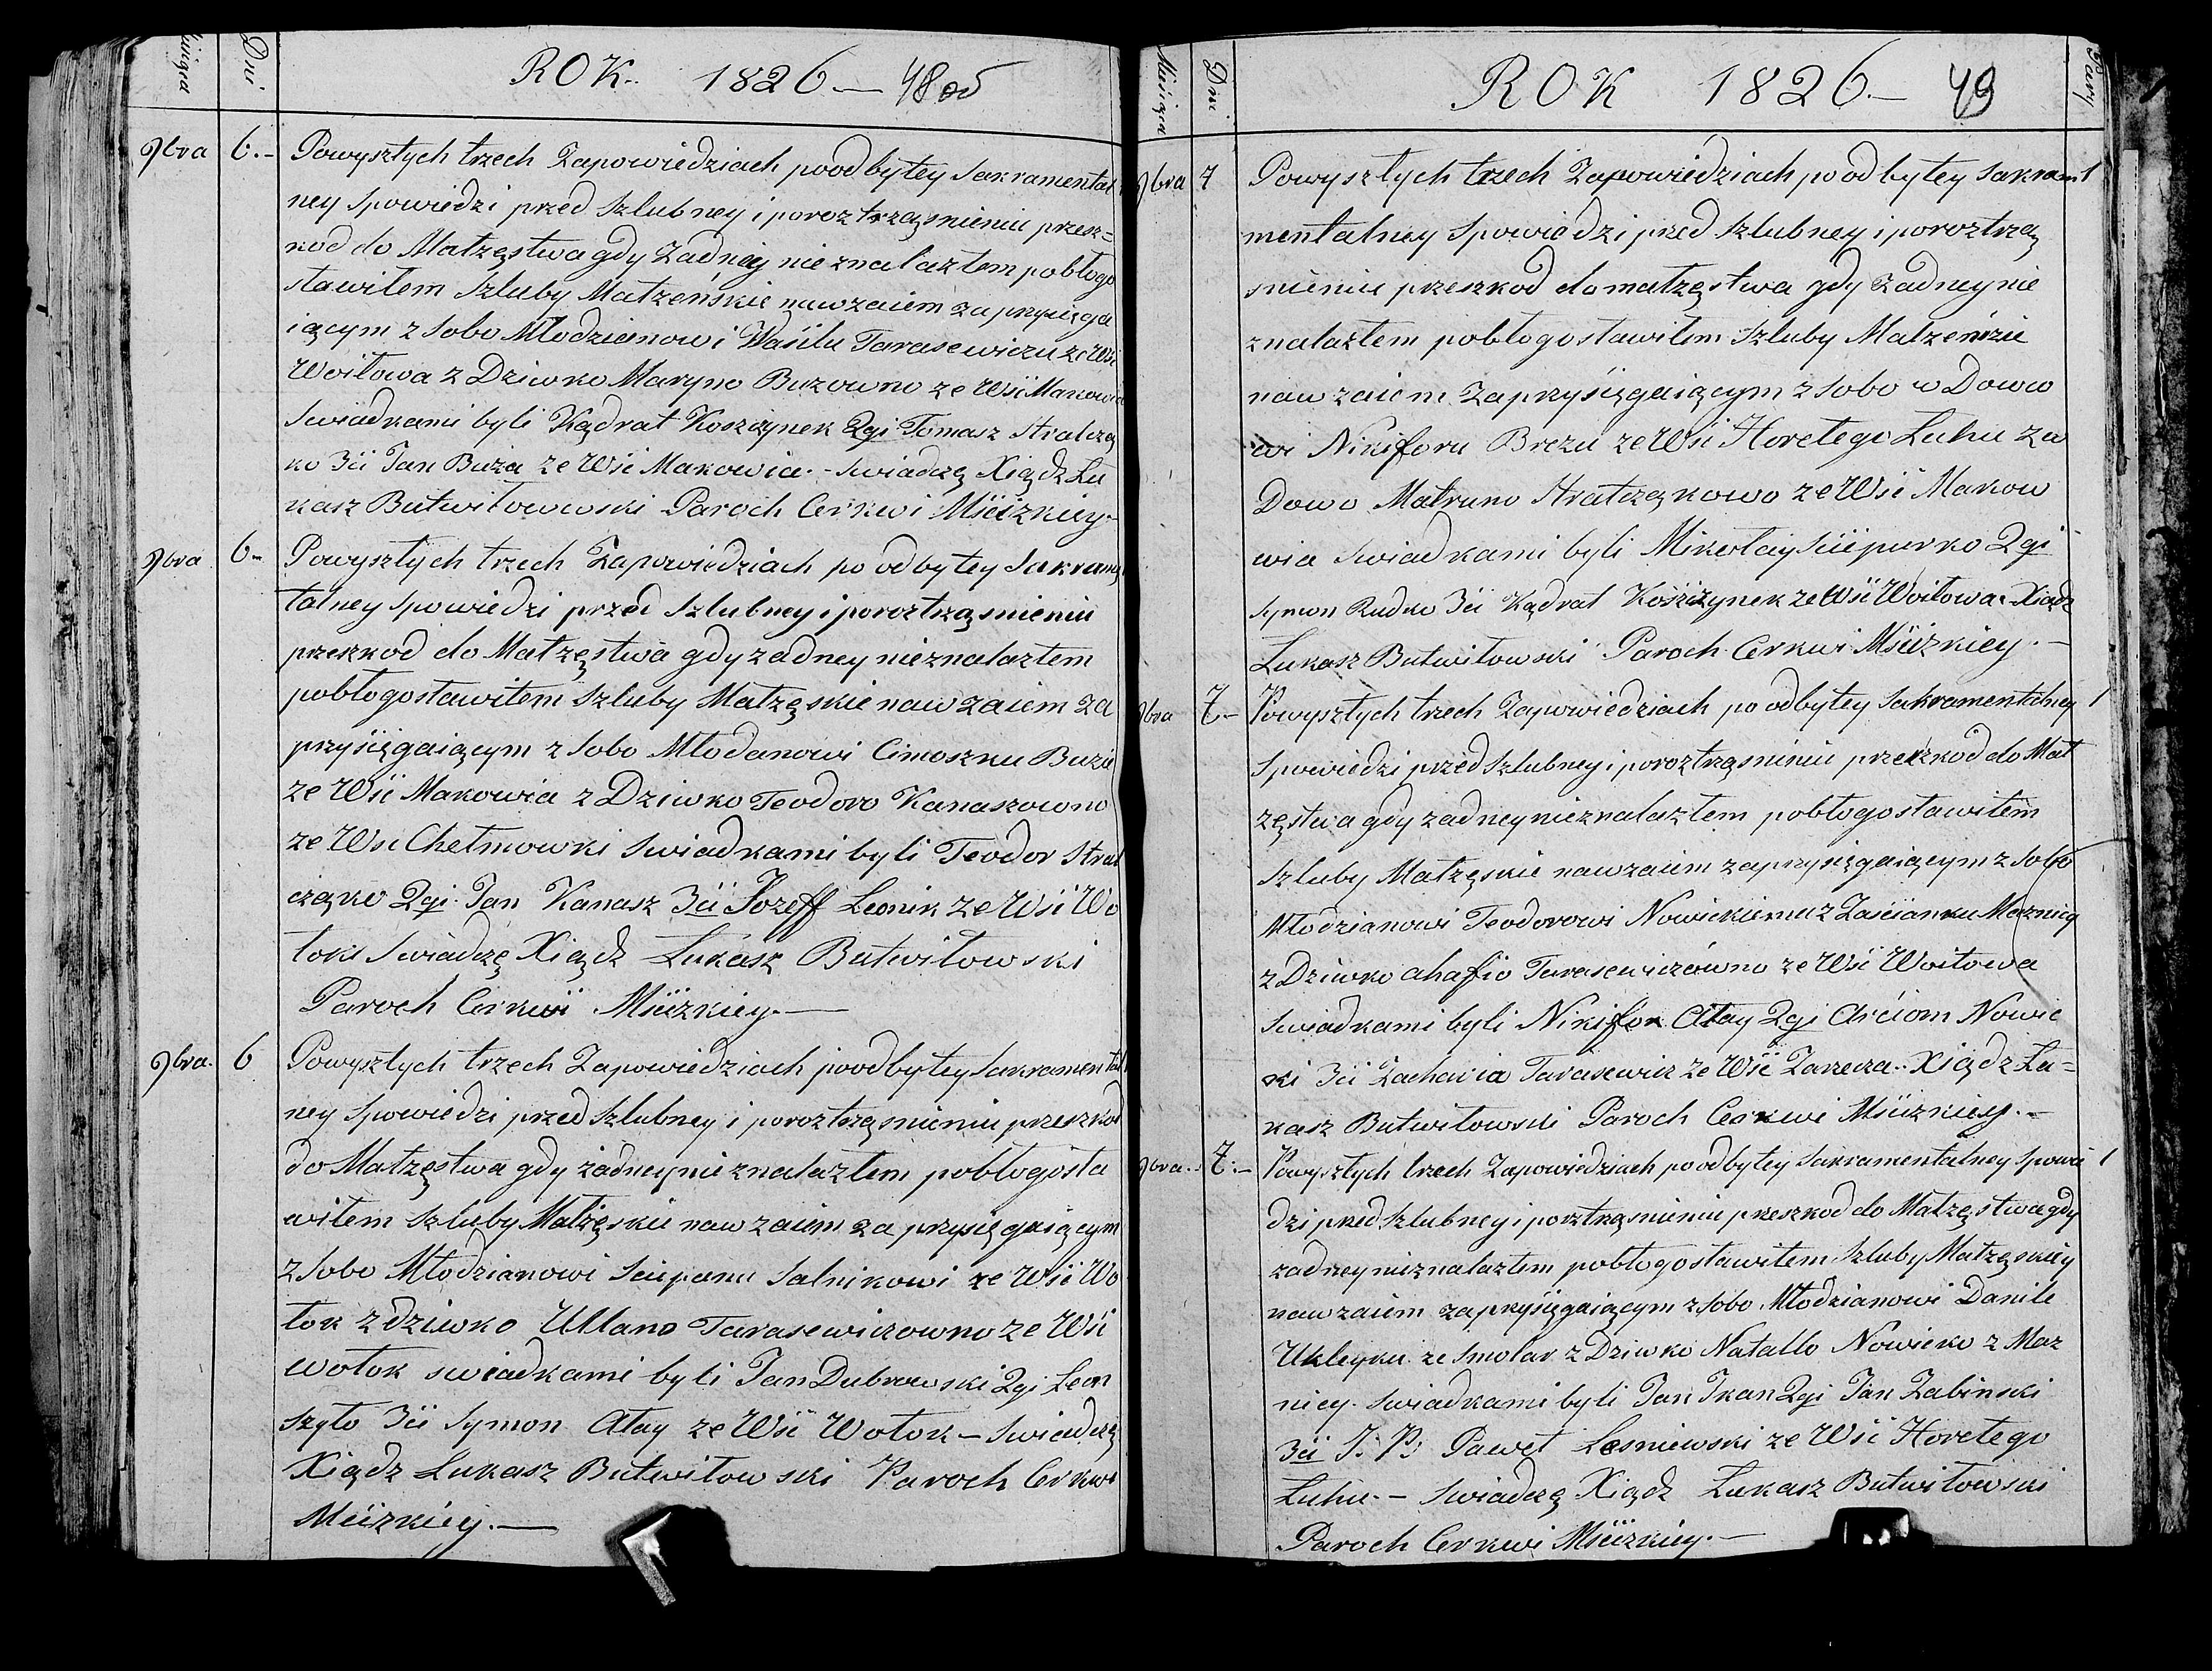 Dni
ROK. 1826 — 48 об
9bra 6. – Powyszłych trzech Zapowiedziach poodbytey Sakramental
ney Spowiedzi przed Szlubney i poroztrząsnieniu przesz=
kod do Matzęstwa gdy żadney nie znalazłem pobłogo
sławiłem Szluby Matzeńskie nawzaiem zaprzysięga
iącym z Sobo Młodzianowi Wasilu Tarasewiczu ze Wsi
Woitowa z Dziwko Maryno Buzowno ze Wsi Makowia
Swiadkami byli Kądrat Koszczynek 2gi Tomasz Stralczą
ko 3ci Jan Buza ze Wsi Makowia. – Swiadczę Xiądz Łu
kasz Butwiłowski Paroch Cerkwi Mścizkiey –
9bra 6 – Powyszłych trzech Zapowiedziach po odbytey Sakramę
talney Spowiedzi przed Szlubney i poroztrząsnieniu
przeszkod do Matzęstwa gdy zadney nieznalazłem
pobłogosławiłem Szluby Matzęskie nawzaiem za
przysięgaiącym z Sobo Młodanowi Cimoszku Buzie
ze Wsi Makowia z Dziwko Teodoro Kanaszowno
ze Wsi Chełmowki Swiadkami byli Teodor Stral
cząko 2gi Jan Kanasz 3ci Jozeff Leonik ze Wsi Wo
łoki Swiadczę Xiądz Łukasz Butwiłowski
Paroch Cerkwi Mścizkiey. —
9bra. 6 Powyszłych trzech Zapowiedziach poodbytey Sakramental
ney Spowiedzi przed Szlubney i poroztrząsnieniu przeszkod
do Matzęstwa gdy żadney nie znalazłem pobłogosła
wiłem Szluby Matzęskie nawzaiem zaprzysięgaiącym
z Sobo Młodzianowi Sciepanu Salnikowi ze Wsi Wo
łok z dziwko Ullano Tarasewiczowno ze Wsi
Wołok swiadkami byli Jan Dubrowski 2gi Leon
Szyło 3ci Symon Ałay ze Wsi Wołok – Swiadczę
Xiądz Łukasz Butwiłowski Paroch Cerkwi
Mścizkiey. —
Miesiąca Dni ROK 1826. – 49 Pary
9bra 7 Powyszłych trzech Zapowiedziach po odbytey Sakram 1
mentalney Spowiedzi przed Szlubney i poroztrzą
snieniu przeszkod do matzęstwa gdy żadney nie
znalazłem pobłogosławiłem Szluby Matzeńzie
nawzaiem Zaprzysięgaiącym z Sobo w Dowo
wi Nikiforu Brezu ze Wsi Horełego Łuhu z w
Dowo Matruno Stratcząkowo ze Wsi Makow
wia Swiadkami byli Mikołay Sciepurko 2gi
Symon Rudko 3ci Kądrat Koszczynek ze Wsi Woitowa. Xiądz
Łukasz Butwiłowski Paroch Cerkwi Mścizkiey. –
9bra 7. – Powyszłych trzech Zapowiedziach po odbytey Sakramentalney 1
Spowiedzi przed Szlubney i poroztrząsnieniu przeszkod do Mał
zęstwa gdy zadney nieznalazłem pobłogosławiłem
Szluby Matzęskie nawzaiem zaprzysięgaiącym z Sobo
Młodzianowi Teodorowi Nowickiemu z Zaścianku Maznicy
z Dziwko Ahafio Tarasewiczówno ze Wsi Woitowa
Swiadkami byli Nikifor Ałay 2gi Arciom Nowic
ki 3ci Zacharia Tarasewicz ze Wsi Zarzecza.. Xiądz Łu=
kasz Butwiłowski Paroch Cerkwi Mścizkiey. –
9bra. 7. – Powyszłych trzech Zapowiedziach po odbytey Sakramentalney Spowie 1
dzi przed Szlubney i porztrząsnieniu przeszkod do Matzęstwa gdy
zadney nieznalazłem pobłogosławiłem Szluby Matzęskiey
nawzaiem zaprzysięgaiącym z Sobo Młodzianowi Danile
Ukleyku ze Smolar z Dziwko Natallo Nowicko z Maz
nicy. Swiadkami byli Jan Jkan 2gi Jan Zabinski
3ci J: P: Paweł Lesniewski ze Wsi Horełego
Łuhu. – Swiadczę Xiądz Łukasz Butwiłowski
Paroch Cerkwi Mścizkiey. –